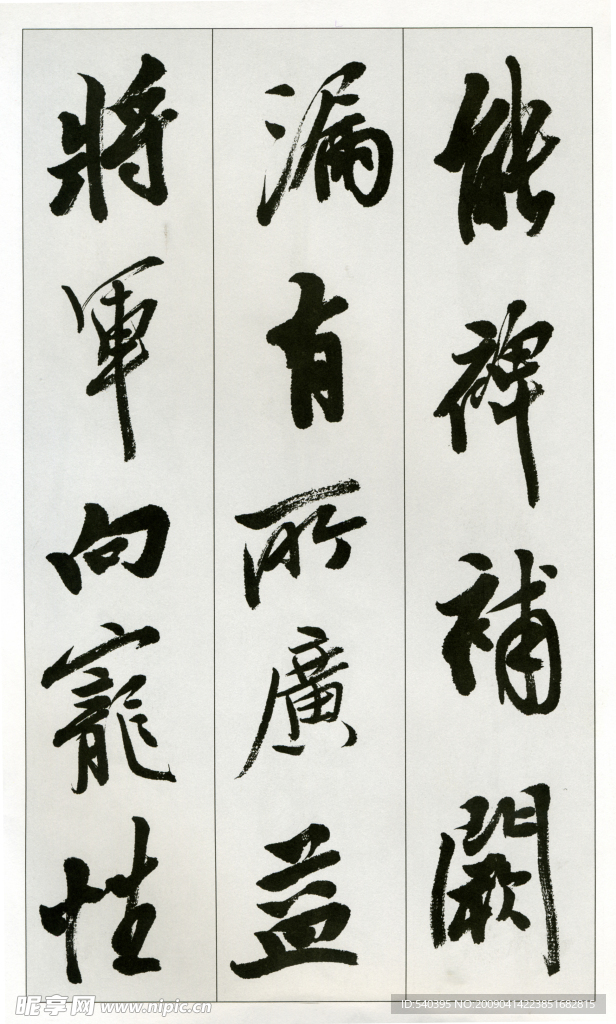 能裨補闕
漏有所廣益
將軍向寵性
昵享网 www.nipic.cn
ID:540395 NO:20090414223851682815